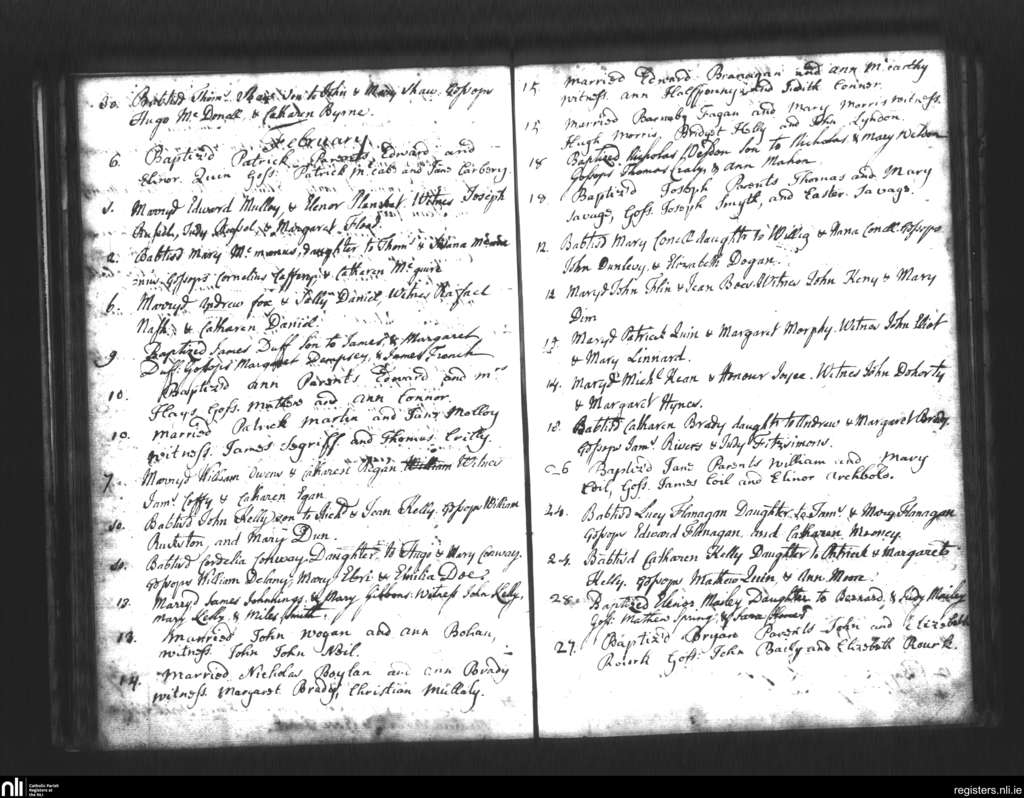 30. Babtisd Thoms. Shaw Son to John & Mary Shaw. Gosops
Hugo Mc Donall & Catharen Byrne.
February
6. Baptiz'd Patrick Parents Edward and
Elinor Quin Goss. Patrick McCabe and Jane Carbery.
Marryd Edward Mulloy, & Elenor Witnes Joseph
Judy & Margaret Flood.
2. Babtisd Mary Mc manus, daughter to Thoms. &
Gosops Cornelius Caffery & Catharen McGuire
6. Marryd Andrew fox & Sally Daniel Witnes Rafael
Nash & Catharen Daniel.
9. Baptized James Duff Son to James & Margaret
Duff. Gosops Margaret Dempsey, & James French
10. Baptiz'd ann Parents Edward and mrs
Hays Goss. Mathew and ann Connor.
10. married Patrick Martin and Jane Molloy
witness. James Segriff and Thomas Crilly.
7. Marryd William Owens & Catharen Regan Witnes
Jams. Coffy & Catharen Egan.
10. Babtisd John Kelly son to Richd. & Joan Kelly. Gosops William
and Mary Dun.
Babtisd Cordelia Conway Daughter to Hugo & Mary Conway.
Gosops William Delany, Mary & Emilia Doe.
12. Maryd James Johnnings & Mary Gibbons. Witness John Kelly,
Mary Kelly & Miles Smith.
13. Married John Wogan and ann Bohan,
witness. John John Neil.
14. Married Nicholas Boylan and ann Brady
witness. Margaret Brady, Christian Mullaly.
15. married Edward Branagan and ann McCarthy
witness. ann Halfpenny and Judith Connor.
15. married Barnaby Fagan and Mary Morris witness.
Hugh Morris, Bridget and John Lyndon.
18 Baptized Nicholas Weldon Son to Nicholas & Mary Weldon
Gosops Thomas Craly, & Ann Mahon.
18 Baptiz'd Joseph Parents Thomas and Mary
Savage, Goss. Joseph Smyth, and Easter Savage.
12. Babtisd Mary Conell daughter to Willig & Anna Conell. Gosops
John Dunlevy, & Elizabeth Dogan.
12 Maryd John Flin & Jean Witnes John Keny & Mary
Dim
14 Maryd Patrick Quin & Margaret Morphy. Witnes John Eliot
& Mary Linnard.
14. Maryd Michl. Kean & Honour Joyce. Witnes John Dohorty
& Margaret Hynes.
18. Babtisd Catharen Brady daughter to Andrew & Margaret Brady.
Gosops Jams. Rivers & Judy Fitzsimons.
26 Baptiz'd Jane Parents William and Mary
Coil, Goss. James Coil and Elinor Archbold.
24. Babtisd Lucy Flanagan Daughter to Jams. & Mary Flanagan
Gosops Edward Flanagan, and Catharen
24. Babtisd Catharen Kelly Daughter to Patrick & Margaret
Kelly. Gosops Mathew Quin, & Ann Moore.
28. Baptized Elenor Morley Daughter to Bernard & Judy Morley
Goss. Mathew Spring, & Sara
27. Baptiz'd Bryan Parents John and Elizabeth
Rourk Goss. John Baily and Elizabeth Rourk.
nli
Catholic Parish
Registers at
the NLI
registers.nli.ie